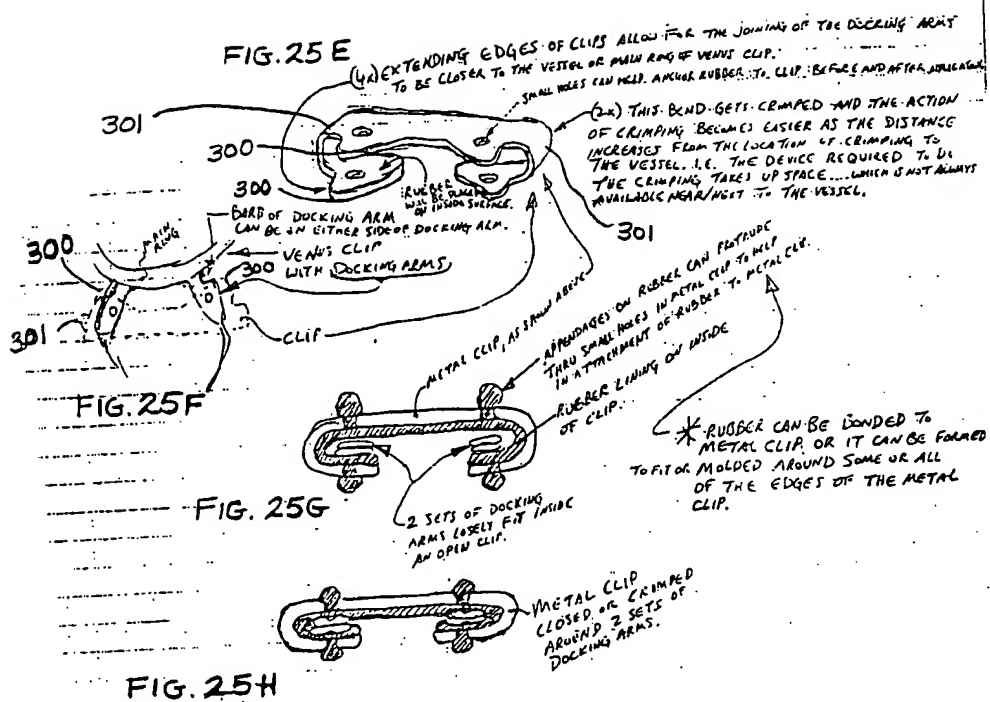 FIG. 25E
(4x) EXTENDING EDGES OF CLIPS ALLOW FOR THE JOINING OF THE DOCKING ARMS
TO BE CLOSER TO THE VESSEL OR MAIN RING OF VENUS CLIP.
SMALL HOLES CAN HELP ANCHOR RUBBER TO CLIP BEFORE AND AFTER APPLICATION
(2x) THIS BEND GETS CRIMPED AND THE ACTION
OF CRIMPING BECOMES EASIER AS THE DISTANCE
INCREASES FROM THE LOCATION OF CRIMPING TO
THE VESSEL. I.E. THE DEVICE REQUIRED TO DO
THE CRIMPING TAKES UP SPACE....WHICH IS NOT ALWAYS
AVAILABLE NEAR/NEXT TO THE VESSEL.
301
300
300
RUBBER
WILL BE PLACED
ON INSIDE SURFACE.
301
BARB OF DOCKING ARM
CAN BE ON EITHER SIDE OF DOCKING ARM.
MAIN
RING
300
VENUS CLIP
300 WITH DOCKING ARMS
301
CLIP
FIG. 25F
METAL CLIP, AS SHOWN ABOVE
APPENDAGES ON RUBBER CAN PROTRUDE
THRU SMALL HOLES IN METAL CLIP TO HELP
IN ATTACHMENT OF RUBBER TO METAL CLIP.
RUBBER LINING ON INSIDE
OF CLIP.
* RUBBER CAN BE BONDED TO
METAL CLIP. OR IT CAN BE FORMED
TO FIT OR MOLDED AROUND SOME OR ALL
OF THE EDGES OF THE METAL
CLIP.
FIG. 25G
2 SETS OF DOCKING
ARMS LOSELY FIT INSIDE
AN OPEN CLIP.
METAL CLIP
CLOSED OR CRIMPED
AROUND 2 SETS OF
DOCKING ARMS.
FIG. 25H